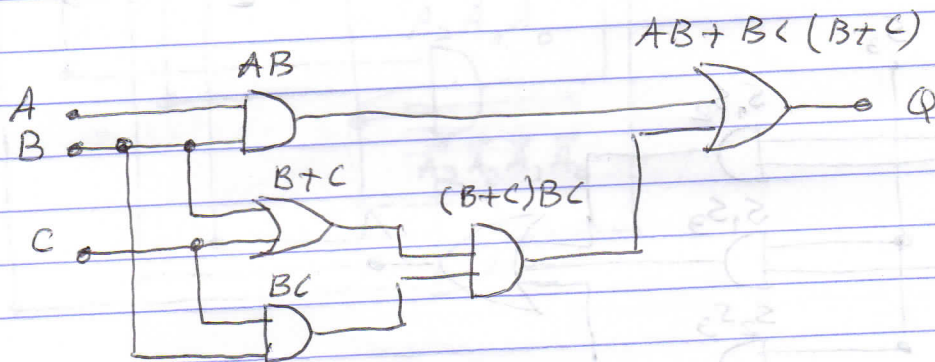 AB + BC (B+C)
AB
A
Q
B
B+C
(B+C)BC
C
BC